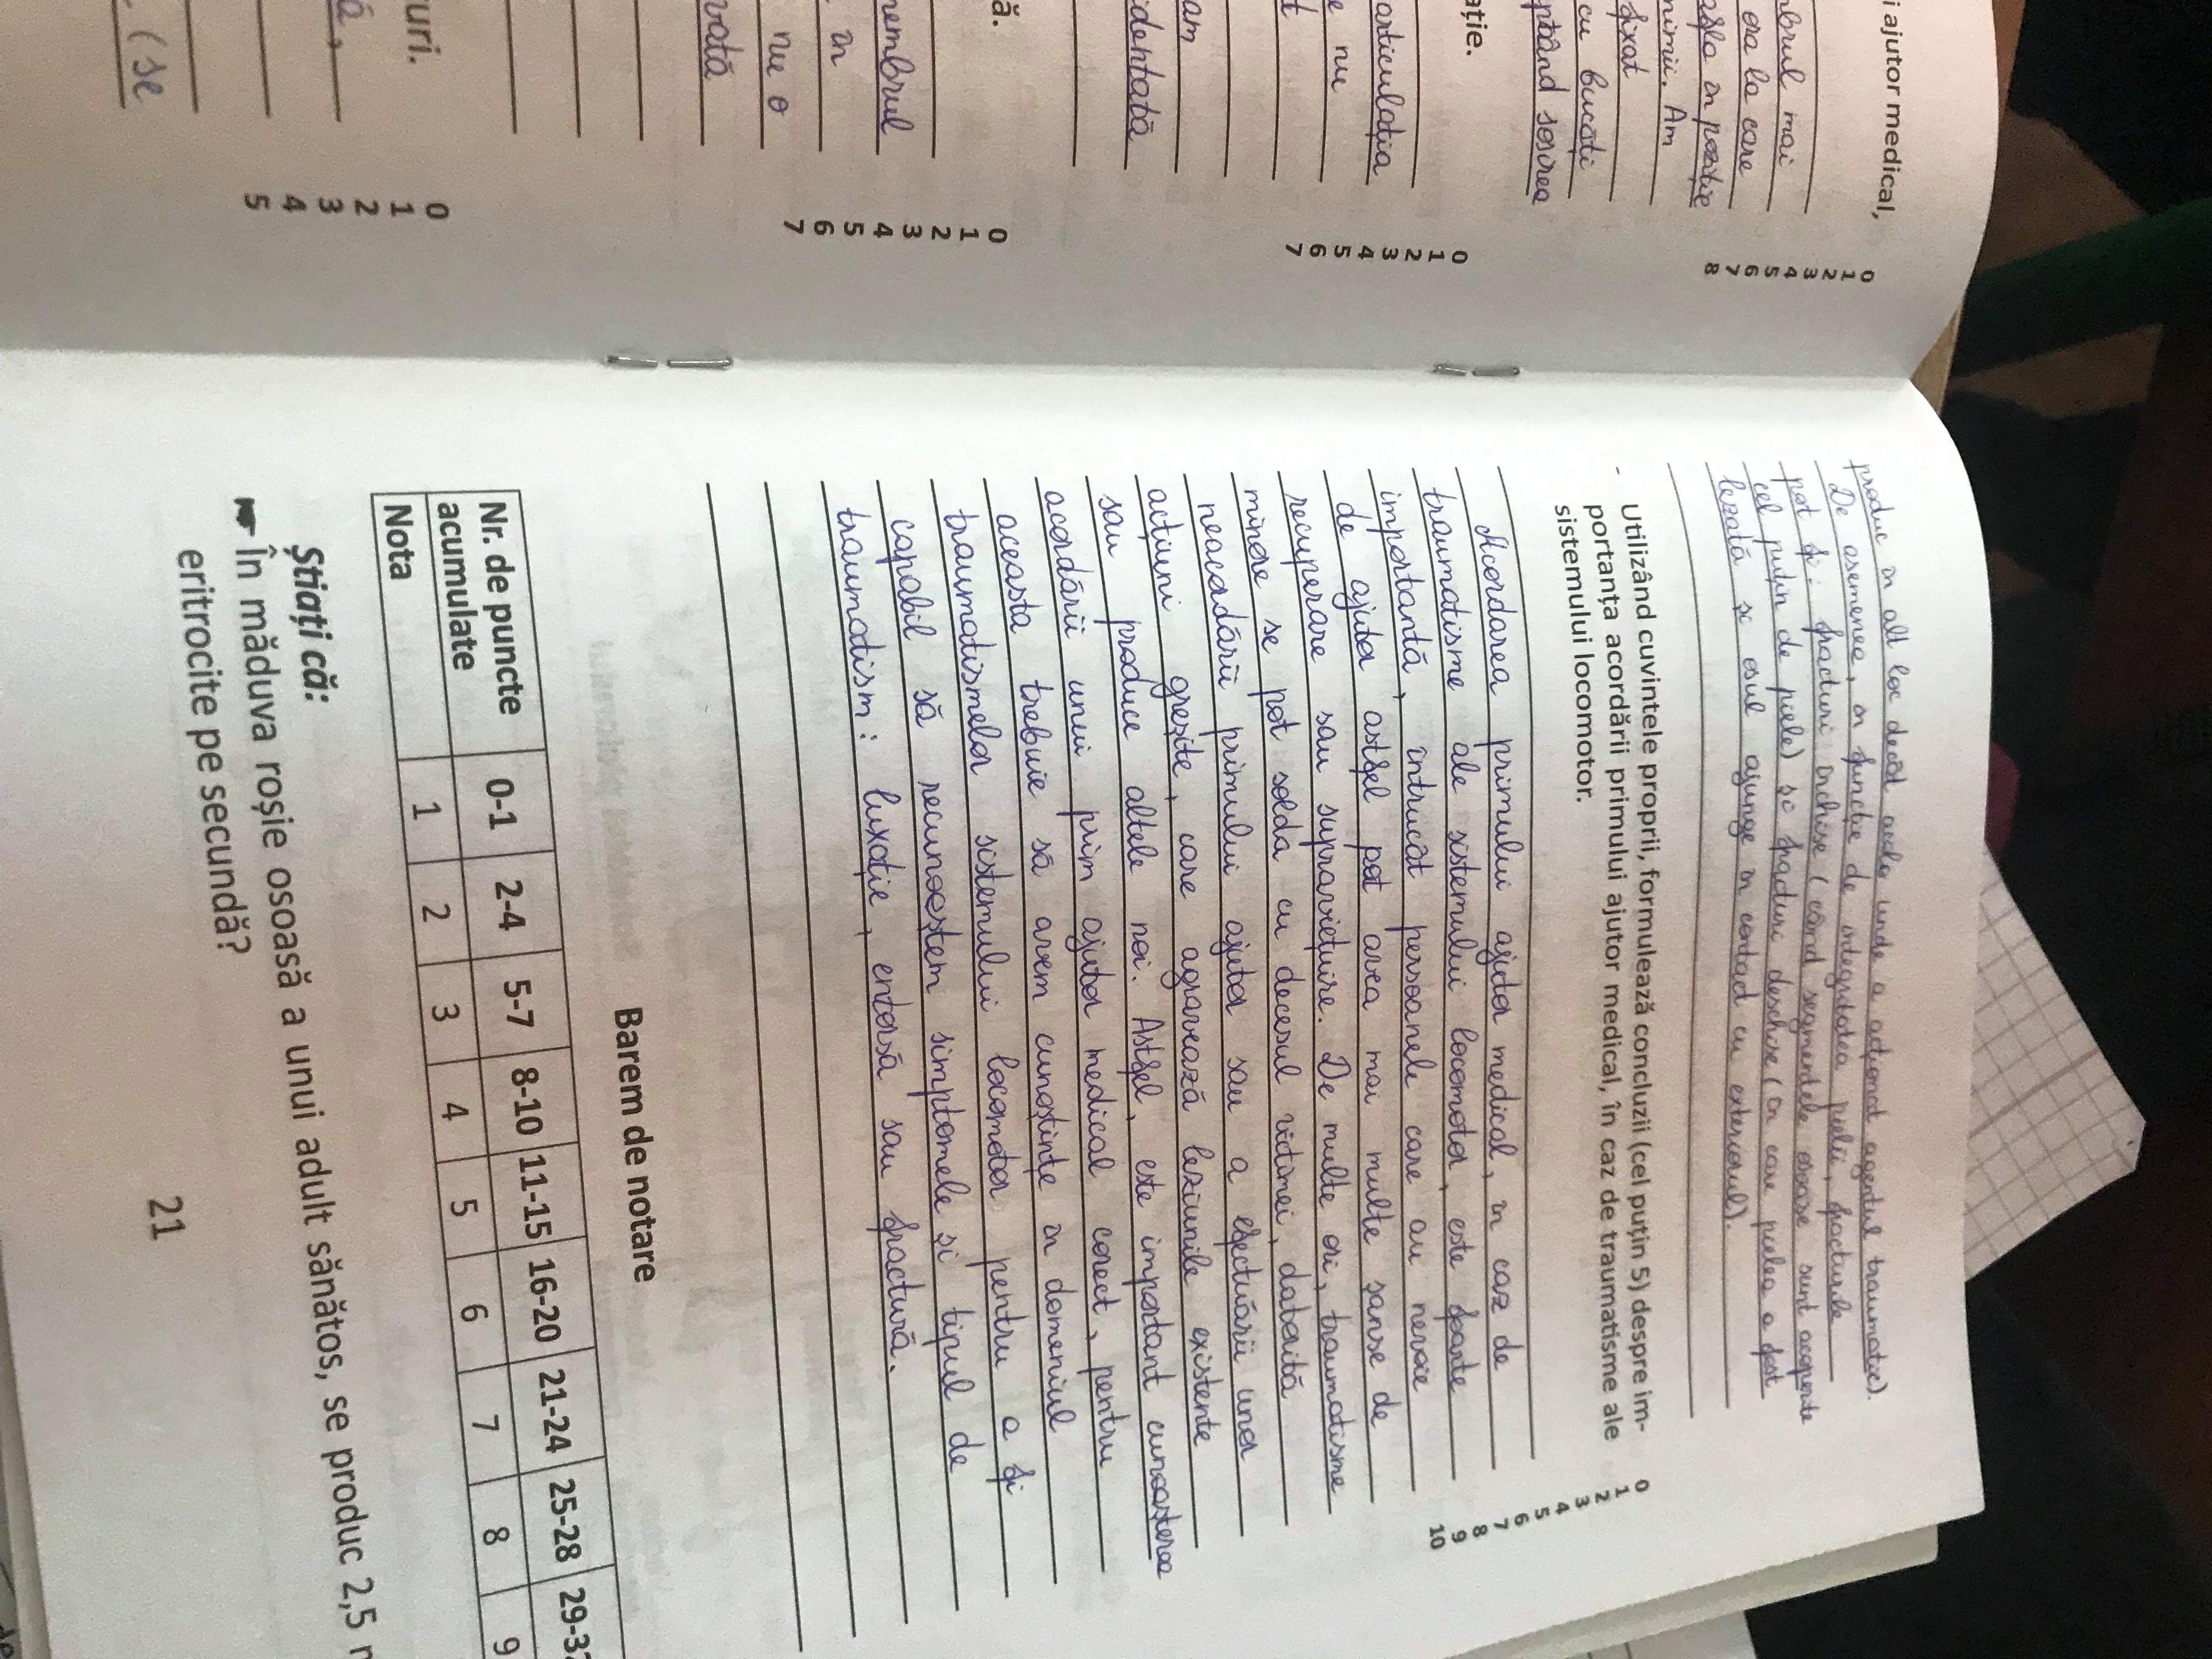 i ajutor medical,
0
1
2
3
4
5
6
7
8
mai
era la care
afla în poziție
Am
fixat
cu bucăți
sosirea
ație.
0
1
2
3
4
5
6
7
articulația
nu
t
am
identată
ă.
0
1
2
3
4
5
6
7
membrul
în
nu o
vată
uri.
0
1
2
3
4
5
ă,
(se
produc în alt loc decât acolo unde a acționat agentul traumatic).
De asemenea, în funcție de integritatea pielii, fracturile
pot fi: fracturi închise (când segmentele osoase sunt acoperite
cel puțin de piele) și fracturi deschise (în care pielea a fost
lezată și osul ajunge în contact cu exteriorul).
- Utilizând cuvintele proprii, formulează concluzii (cel puțin 5) despre im-
portanța acordării primului ajutor medical, în caz de traumatisme ale
sistemului locomotor.
0
1
2
3
4
5
6
7
8
9
10
Acordarea primului ajutor medical, în caz de
traumatisme ale sistemului locomotor, este foarte
importantă, întrucât persoanele care au nevoie
de ajutor astfel pot avea mai multe șanse de
recuperare sau supraviețuire. De multe ori, traumatisme
minore se pot solda cu decesul victimei, datorită
neacordării primului ajutor sau a efectuării unor
acțiuni greșite, care agravează leziunile existente
sau produce altele noi. Astfel, este important cunoașterea
acordării unui prim ajutor medical corect, pentru
aceasta trebuie să avem cunoștințe în domeniul
traumatismelor sistemului locomotor pentru a fi
capabil să recunoaștem simptomele și tipul de
traumatism: luxație, entorsă sau fractură.
Barem de notare
Nr. de puncte acumulate 0-1 2-4 5-7 8-10 11-15 16-20 21-24 25-28 29-32
Nota 1 2 3 4 5 6 7 8 9
Știați că:
☛ În măduva roșie osoasă a unui adult sănătos, se produc 2,5 m
eritrocite pe secundă?
21